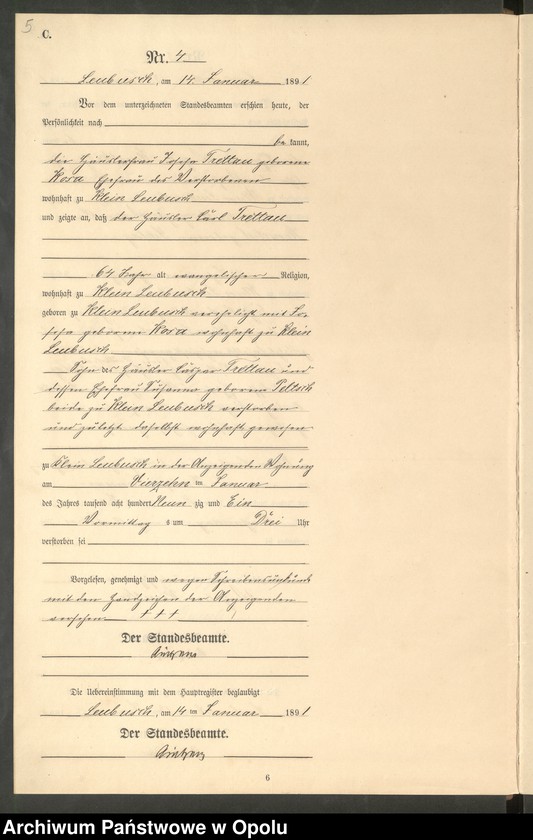 5
C.
Nr. 4
Leubusch, am 14. Januar 1891
Vor dem unterzeichneten Standesbeamten erschien heute, der
Persönlichkeit nach
be kannt,
der Häuslerfrau Josefa Trettau geborene
Kosa Ehefrau des Verstorbenen
wohnhaft zu Klein Leubusch
und zeigte an, daß der Häusler Carl Trettau
64 Jahr alt evangelischer Religion,
wohnhaft zu Klein Leubusch
geboren zu Klein Leubusch verehelicht mit Jo-
sefa geborene Kosa wohnhaft zu Klein
Leubusch
Sohn des Häusler Caspar Trettau und
dessen Ehefrau Susanna geborene
beide zu Klein Leubusch verstorben
und zuletzt daselbst wohnhaft gewesen
zu Klein Leubusch in der Anzeigenden Wohnung
am Vierzehn ten Januar
des Jahres tausend acht hundert Neun zig und Ein
Vormittag s um Drei Uhr
verstorben sei
Vorgelesen, genehmigt und wegen Schreibensunkunde
mit den Handzeichen der Anzeigenden
versehen + + +
Der Standesbeamte.
Die Uebereinstimmung mit dem Hauptregister beglaubigt
Leubusch, am 14 ten Januar 1891
Der Standesbeamte.
6
Archiwum Państwowe w Opolu